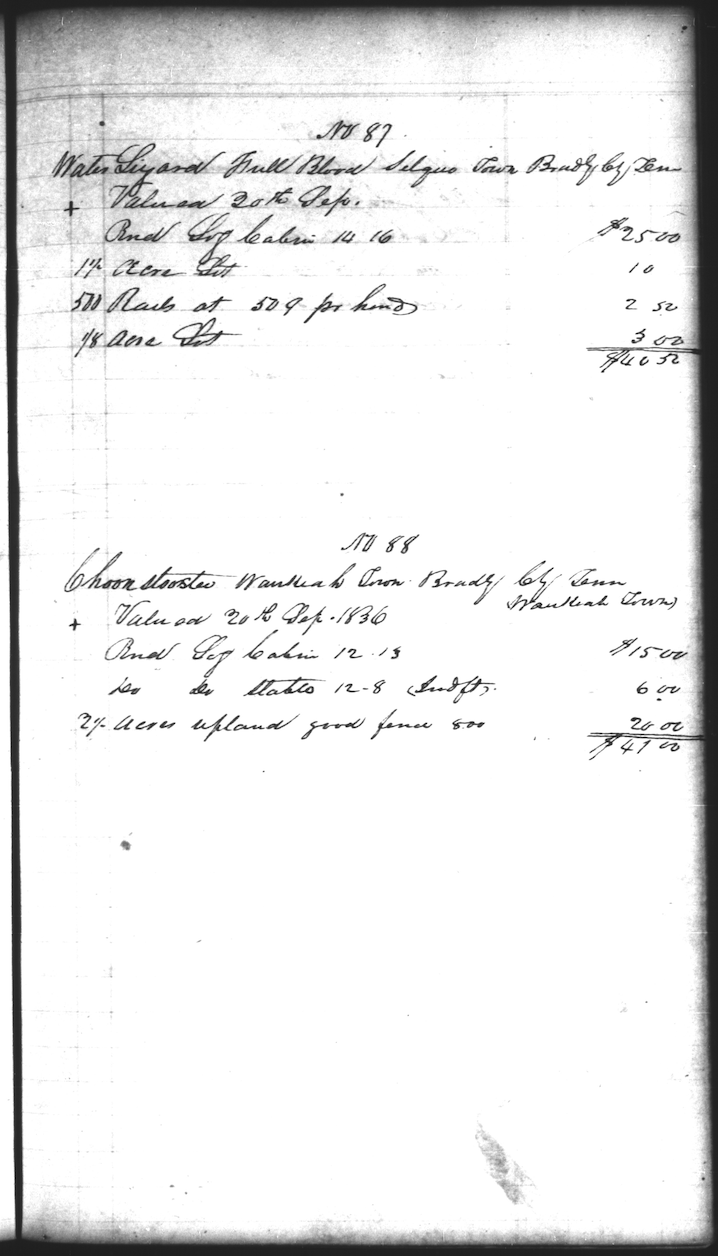 No 87
Water Lizard Full Blood Selquo Town Bradly Cty Ten
+ Valued 20th Sep.
Rnd Log Cabin 14 16 $25 00
1 1/2 Acre Lot 10
500 Rails at 50 ¢ pr hund 2 50
1/8 Acre Lot 3 00
$40 50
No 88
Choonstooster Waukeah Town Bradly Cty Tenn
Waukeah Town
+ Valued 20th Sep. 1836
Rnd Log Cabin 12 13 $15 00
Do Do Stable 12-8 (Indft) 6 00
2 1/2 Acres upland good fence 800 20 00
$41 00